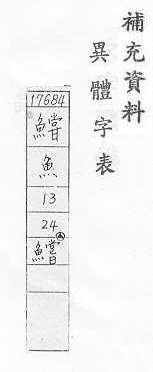 補充資料
異體字表
17684
鱨
魚
13
24
鱨